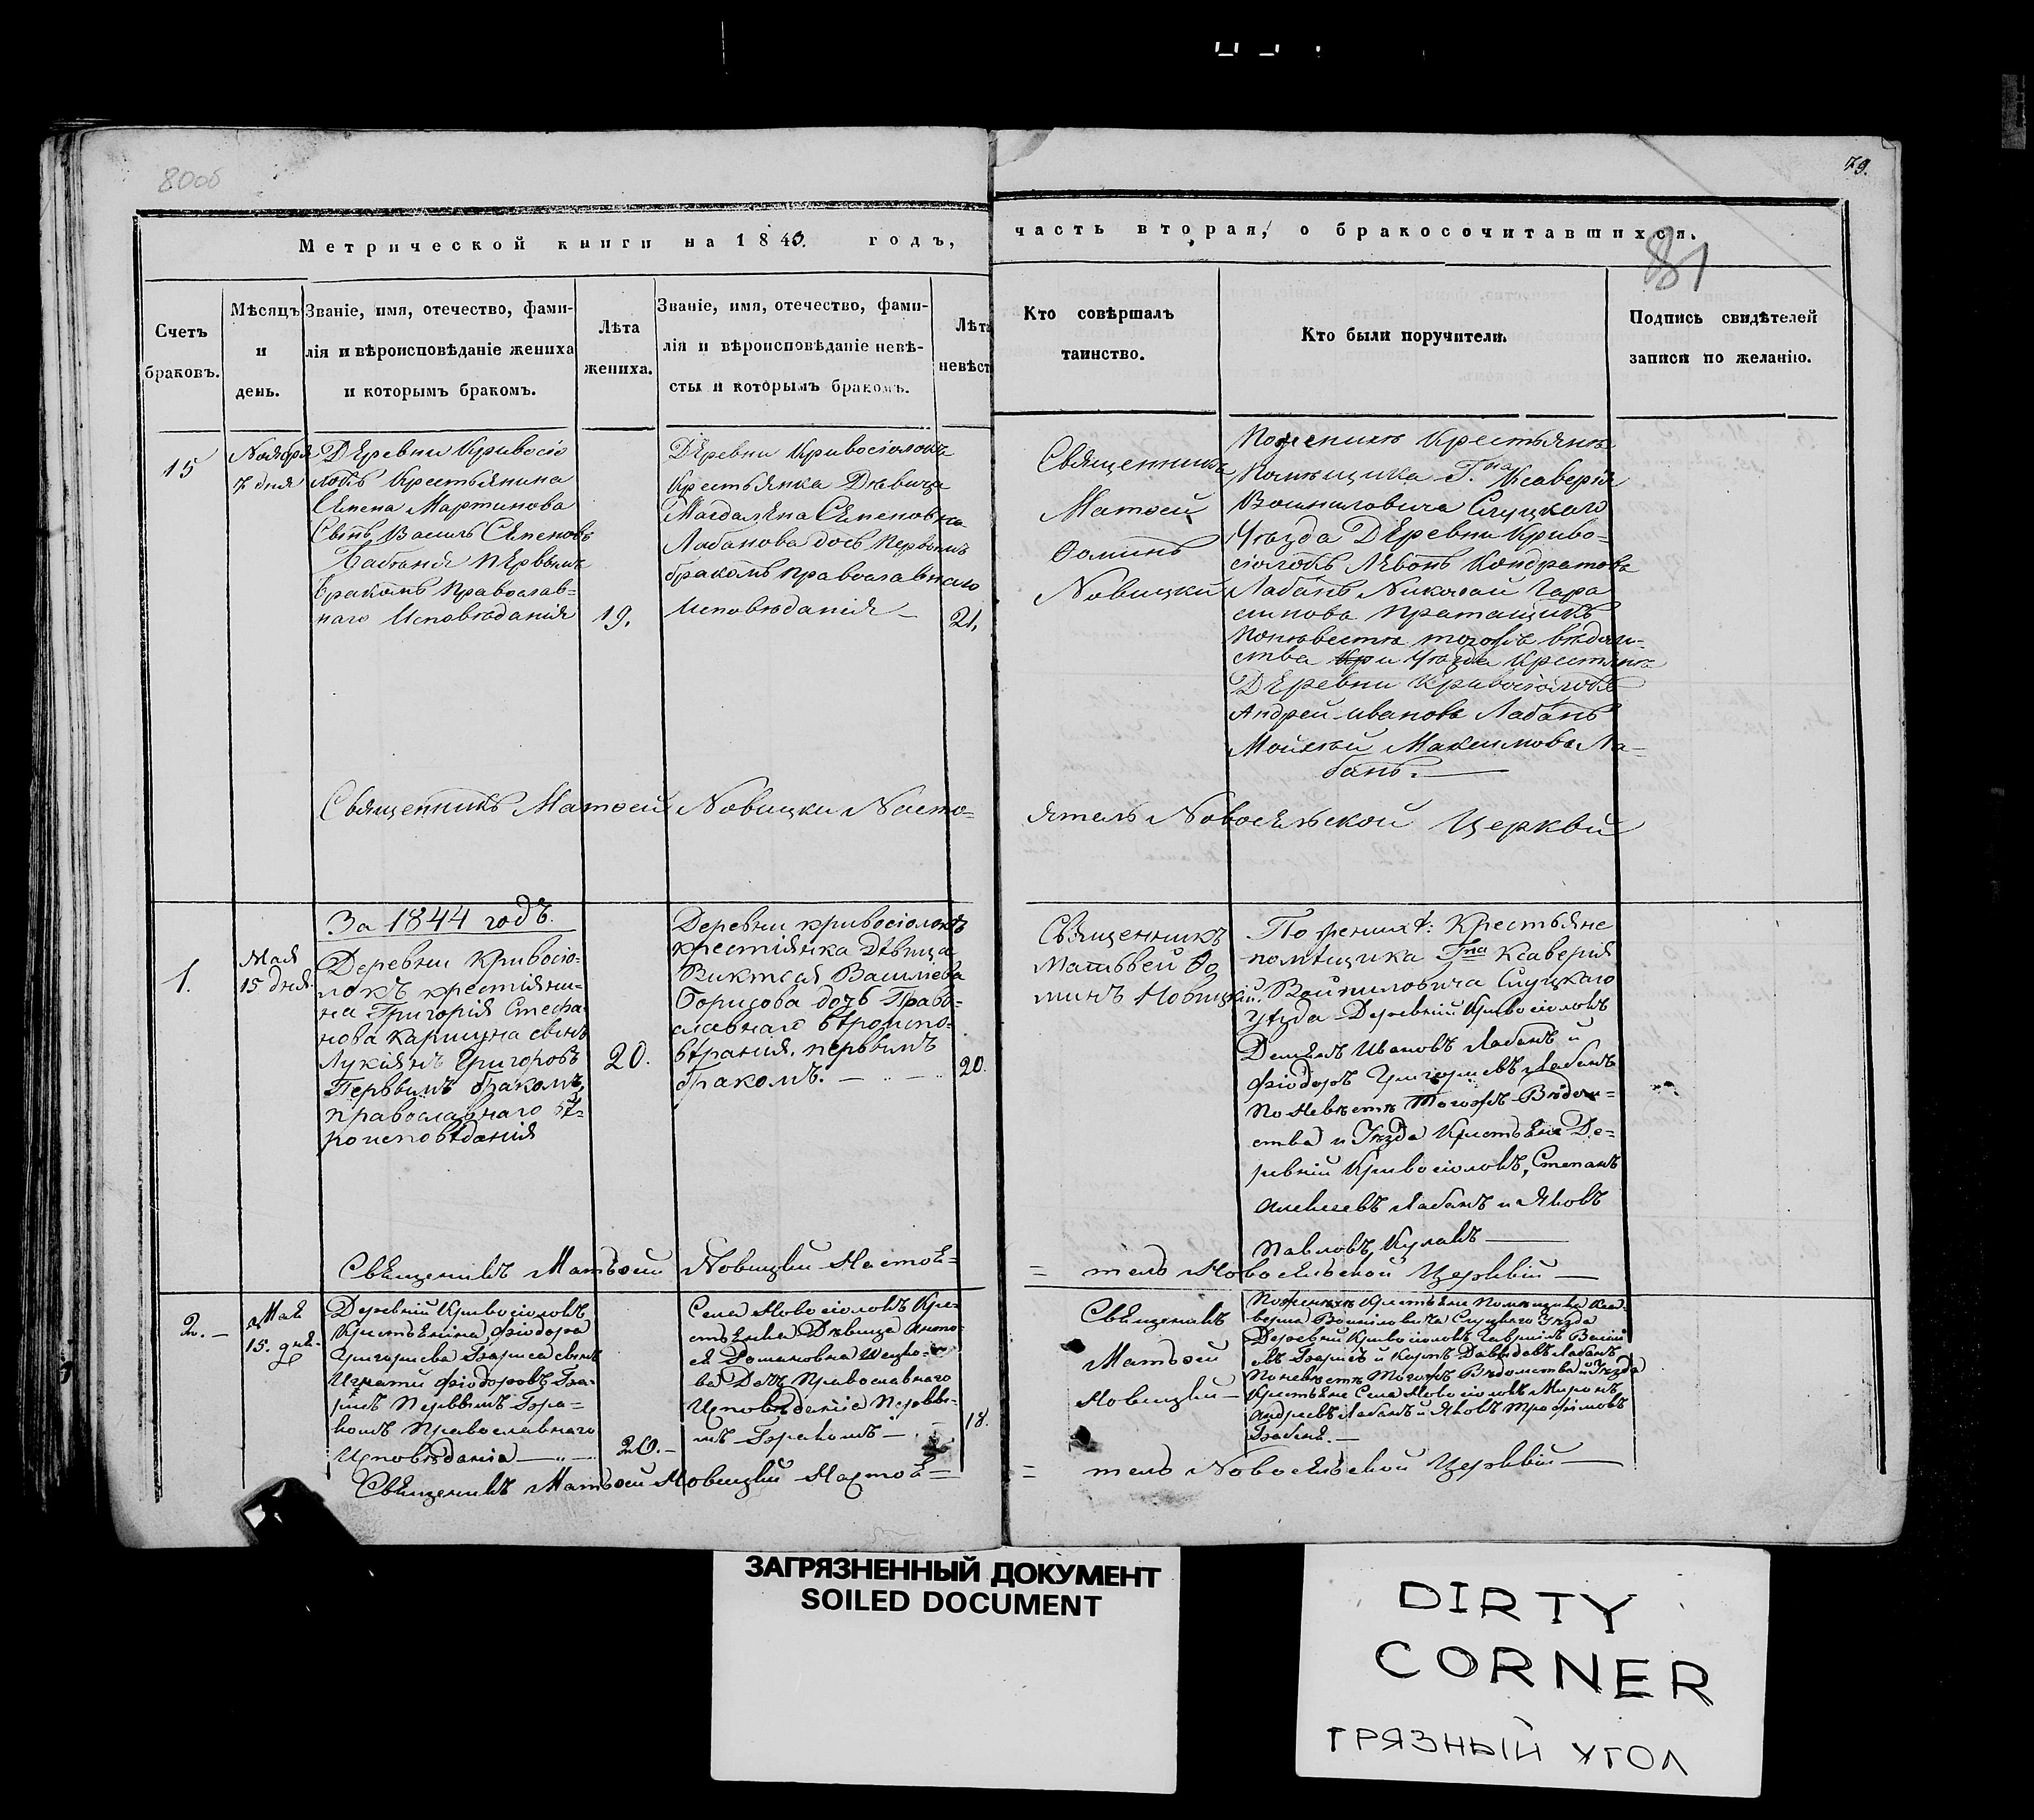 80об
79.
81
Метрической книги на 1843. годъ, часть вторая, о бракосочитавшихся.
Счетъ браковъ.
Мѣсяцъ и день.
Званіе, имя, отечество, фами-
лія и вѣроисповѣданіе жениха
и которымъ бракомъ.
Лѣта жениха.
Званіе, имя, отечество, фами-
лія и вѣроисповѣданіе невѣ-
сты и которымъ бракомъ.
Лѣта невѣст
Кто совѣршалъ
таинство.
Кто были поручители.
Подпись свидѣтелей
записи по желанію.
15
Ноября
7 дня
Деревни Кривосіо
локъ Крестьянина
Семена Мартинова
Сынъ Василь Семеновъ
первымъ
бракомъ Православ=
наго Исповѣданія
19.
Деревни Кривосіолокъ
Крестьянка Дѣвица
Магдалена Семеновна
Лабанова дочь первымъ
бракомъ православнаго
Исповѣданія —
21.
Священникъ
Матѳей
Ѳоминъ
Новицкий
Поженихѣ Крестьянѣ
Помѣщика Г.на Ксаверія
Войниловича Слуцкаго
Уѣзда Деревни Криво=
сіолокъ Левонъ Кондратовъ
Лабанъ Николай Гара
симовъ
Поневестѣ тогожъ вѣдом-
ства и Уѣзда Крестянѣ
Деревни Кривосіолокъ
Андрей Ивановъ Лабанъ
Мойсей Максимовъ Ла=
банъ. —
Священникъ Матѳей Новицки Насто=
ятель Новосельской Церкви
За 1844 годъ.
1.
Мая
15 дня.
Деревни Кривосіо-
локъ крестіяни-
на Григорія Стефа
нова сынъ
Лукіянъ Григоровъ
Первымъ бракомъ,
православнаго вѣ-
роисповѣданія
20.
Деревни кривосіолокъ
крестіянка Дѣвица
Васильева
Борисова дочь Право-
славнаго вѣроиспо-
первымъ
бракомъ. —
20.
Священникъ
Матьвей Ѳо
минъ Новицкій.
По женихѣ: Крестьяне
помѣщика Гна Ксаверия
Войниловича Слуцкаго
Уѣзда Деревній Кривосіолокъ
Демьянъ Ивановъ Лабанъ и
Фіодоръ Григорьевъ Лабанъ
по Невѣстѣ Тогожъ Вѣдом=
ства и Уѣзда Крестьяне Де=
ревній Кривосіолокъ, Степанъ
Алексеевъ Лабанъ и Яковъ
Павловъ Кулакъ —
Священикъ Матьѳей Новицкий Настоя=
= тель Новосельской Церквій —
2. —
Мая
15. дня.
Деревній Кривосіолокъ
Крестьянина Фіодора
Григориева Бариса сынъ
Игнатій Фіодоровъ Ба-
рисъ Первымъ Бра=
комъ Православнаго
Исповѣданіа —
20. —
Села Новосіолокъ Кре-
стьянка Дѣвица
Романовна
ва Дочь Православнаго
Исповѣданіа Первы-
мъ Бракомъ —
18.
Священикъ
Матьѳей
Новицкий —
Поженихѣ Крестьяне Помѣщика Кса-
верия Войниловича Слуцкаго Уѣзда
Деревній Кривосіолокъ Гаврилъ Васили
евъ Барисъ и Карпъ Давыдовъ Лабанъ
Поневѣстѣ Тогожъ Вѣдомства и Уѣзда
Крестьяне Села Новосіолокъ Миронъ
Андреевъ Лабанъ и Яковъ Трофимовъ
Бабень. —
Священикъ Матьѳей Новицкий Настоя=
= тель Новосельской Церквій —
ЗАГРЯЗНЕННЫЙ ДОКУМЕНТ
SOILED DOCUMENT
DIRTY
CORNER
ГРЯЗНЫЙ УГОЛ